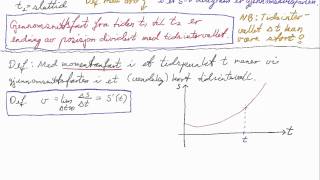 t₂ = sluttid
Gjennomsnittsfart fra tiden t₁ til t₂ er
endring av posisjon dividert med tidsintervallet
MB: Tidsinter-
vallet Δt kan
være stort!
Def: Med momentanfart i et tidspunkt t mener vi
gjennomsnittsfarten i et (uendelig) kort tidsintervall.
Def v = lim Δt→0 Δs/Δt = s'(t)
s
t
t